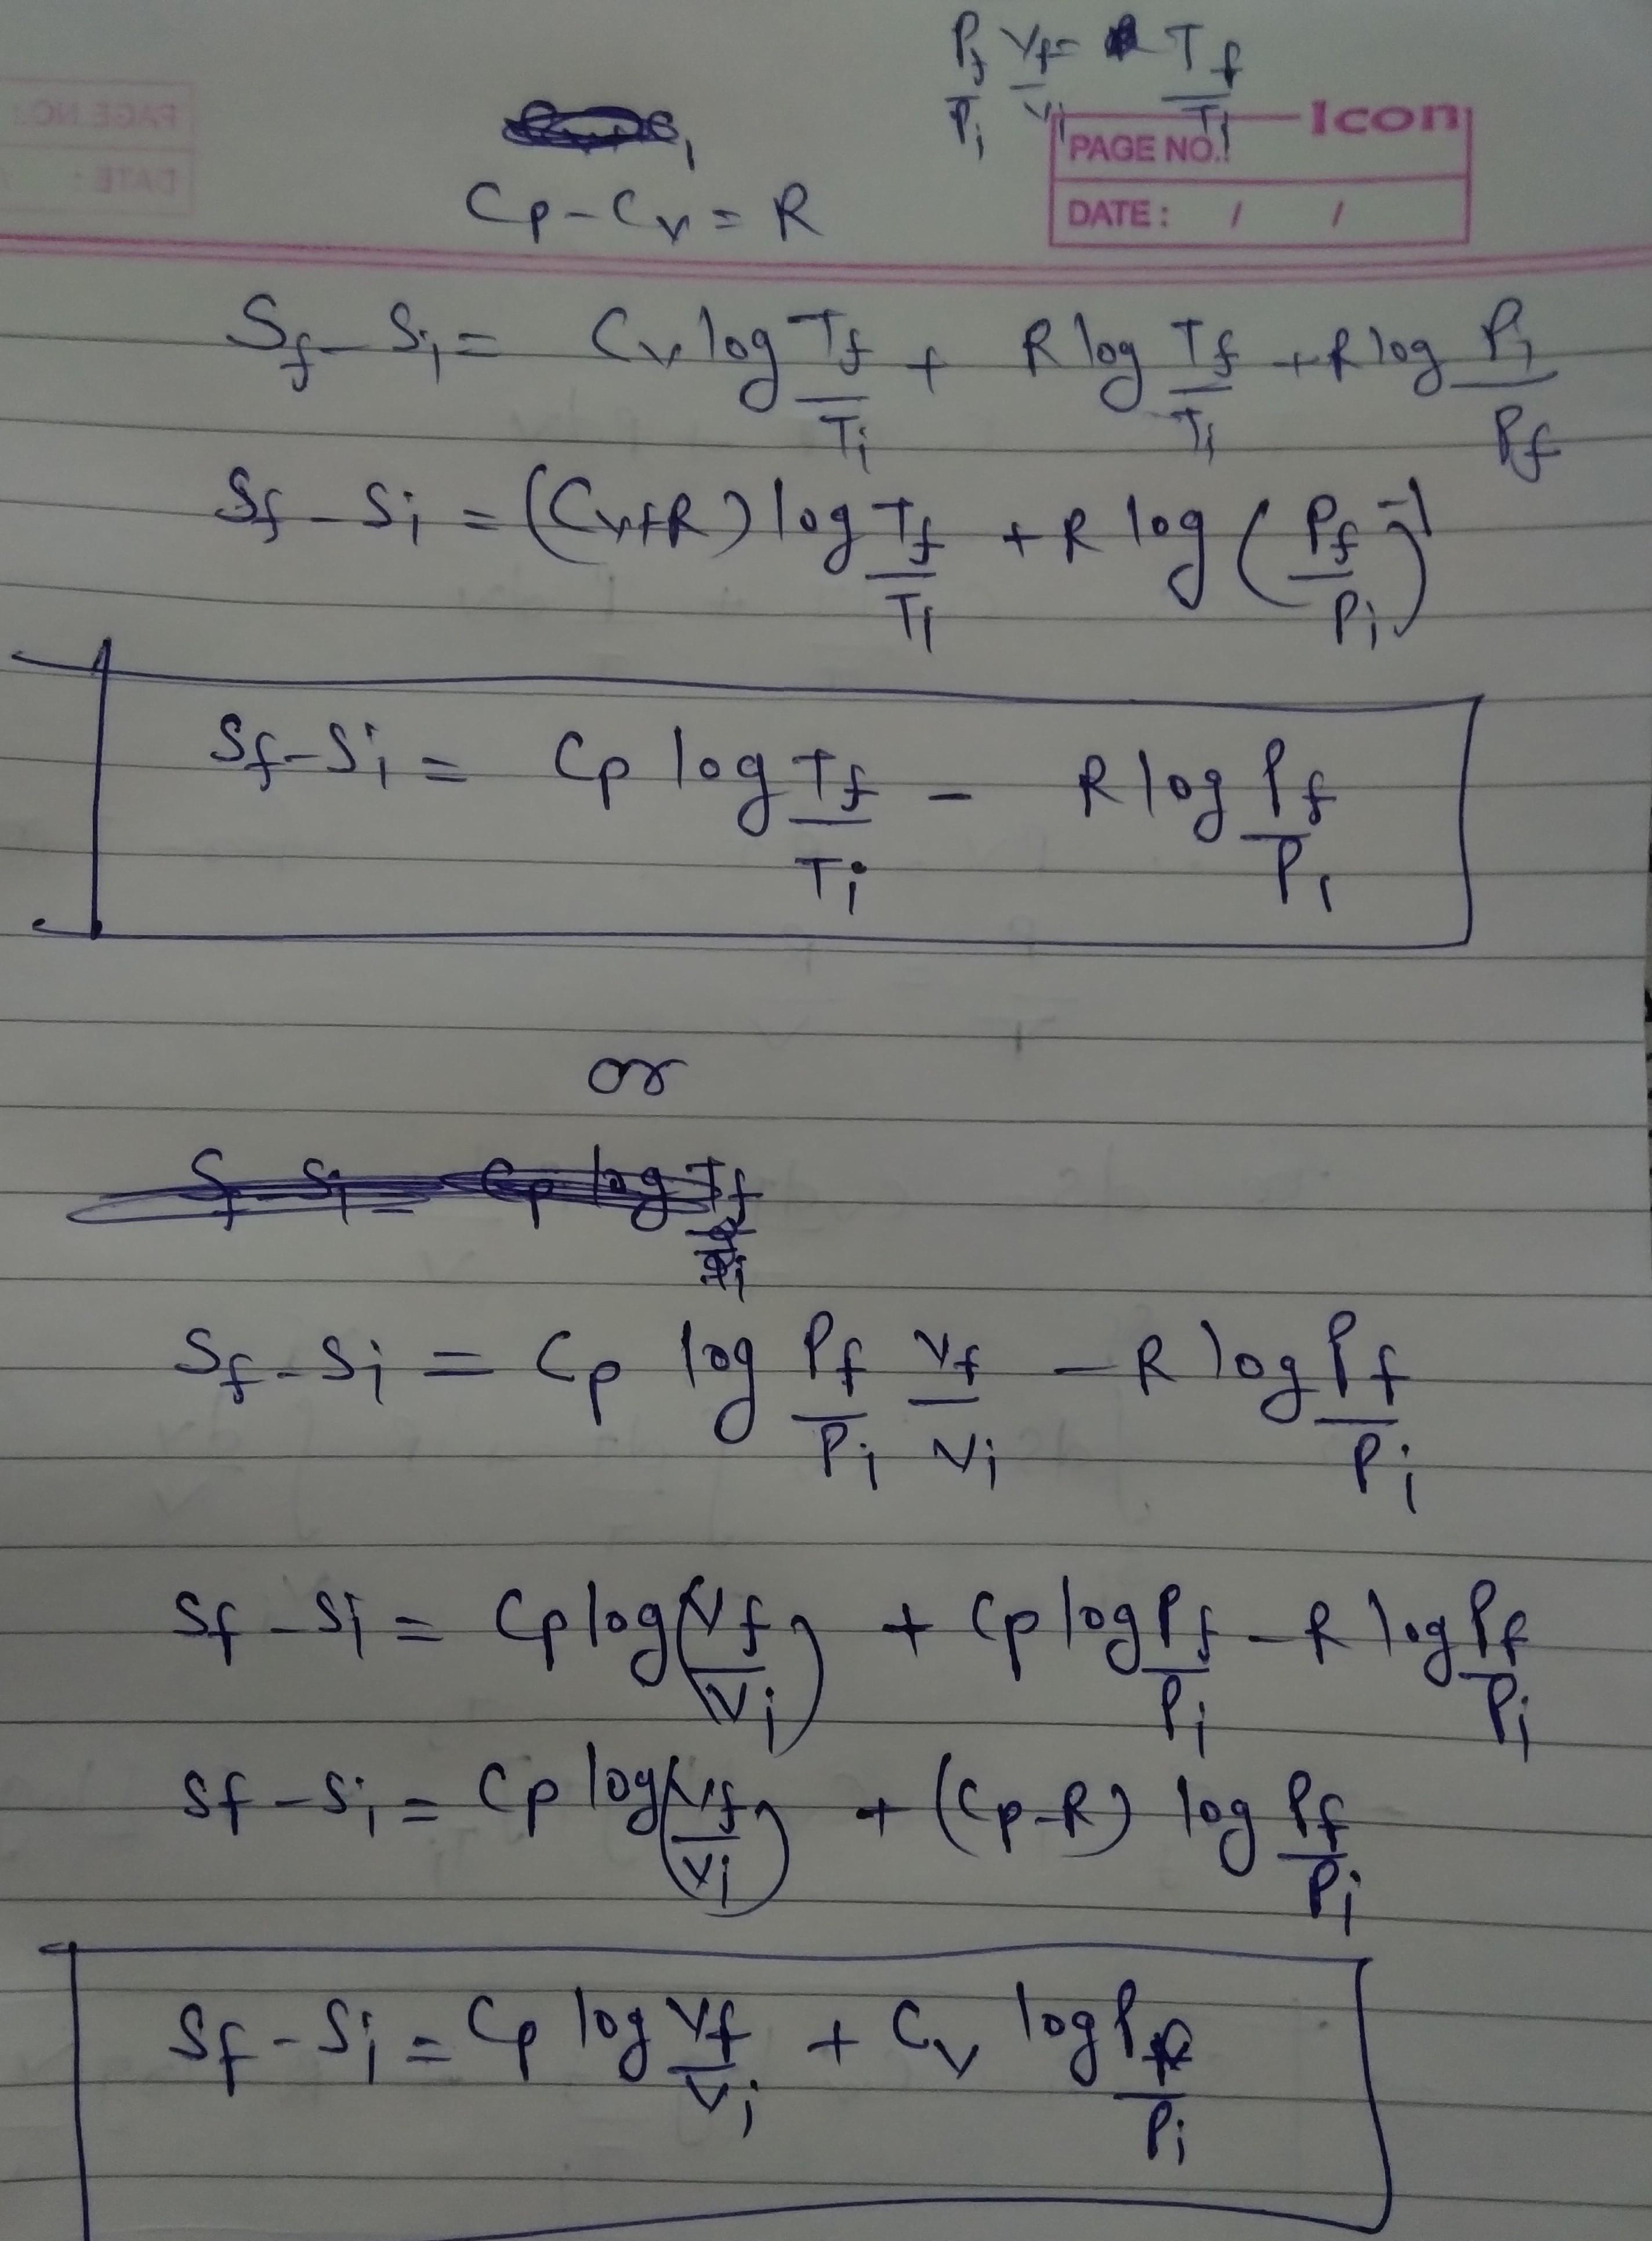 P_f/P_i V_f/V_i = T_f/T_i
Icon
PAGE NO.:
DATE: / /
PAGE NO.:
DATE:
C_p - C_v = R
S_f - S_i = C_v log T_f/T_i + R log T_f/T_i + R log P_i/P_f
S_f - S_i = (C_v+R) log T_f/T_i + R log (P_f/P_i)^-1
S_f - S_i = C_p log T_f/T_i - R log P_f/P_i
or
S_f - S_i = C_p log T_f
S_f - S_i = C_p log P_f/P_i V_f/V_i - R log P_f/P_i
S_f - S_i = C_p log (V_f/V_i) + C_p log P_f/P_i - R log P_f/P_i
S_f - S_i = C_p log (V_f/V_i) + (C_p-R) log P_f/P_i
S_f - S_i = C_p log V_f/V_i + C_v log P_f/P_i